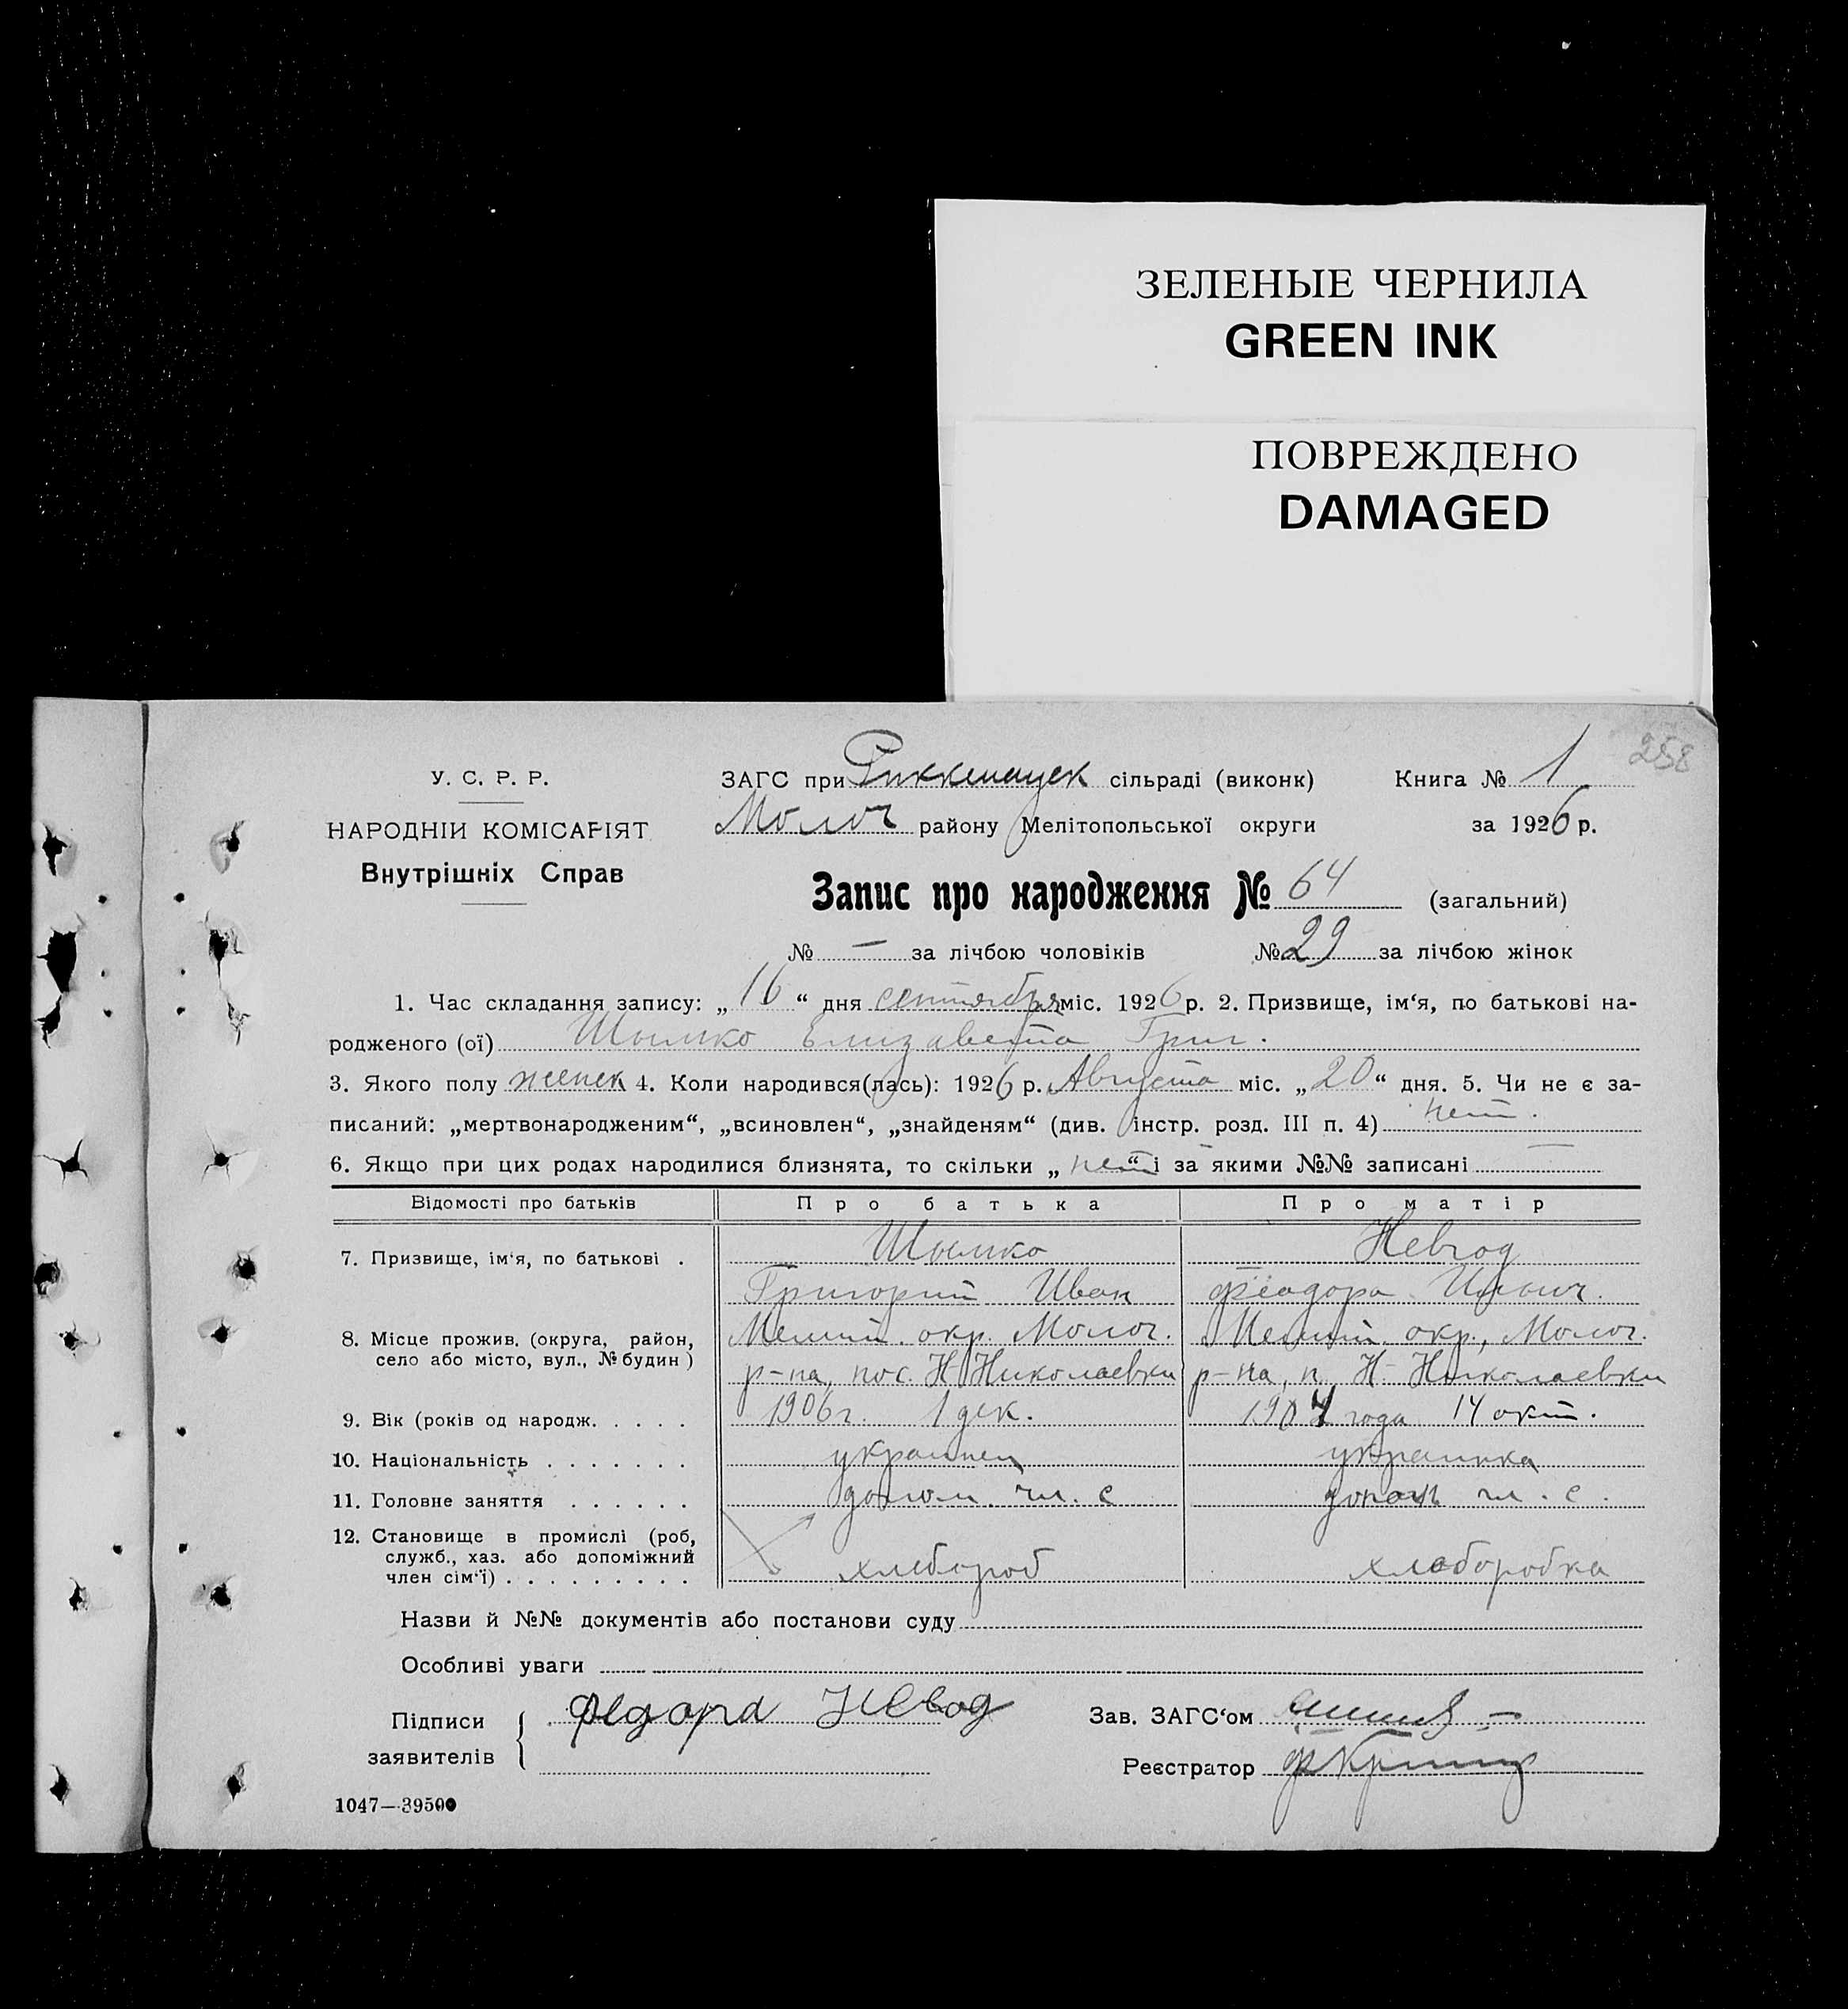 ЗЕЛЕНЫЕ ЧЕРНИЛА
GREEN INK
ПОВРЕЖДЕНО
DAMAGED
258
У. С. Р. Р.
НАРОДНІЙ КОМІСАРІЯТ
Внутрішніх Справ
ЗАГС при Риккенауск сільраді (виконк) Книга № 1
Молоч району Мелітопольської округи за 1926 р.
Запис про народження № 64 (загальний)
№ — за лічбою чоловіків № 29 за лічбою жінок
1. Час складання запису: „16“ дня сентября міс. 1926 р. 2. Призвище, ім‘я, по батькові на-
родженого (ої) Шымко Елизавета Григ.
3. Якого полу женск 4. Коли народився(лась): 1926 р. Августа міс. „20“ дня. 5. Чи не є за-
писаний: „мертвонародженим“, „всиновлен“, „знайденям“ (див. інстр. розд. III п. 4) нет.
6. Якщо при цих родах народилися близнята, то скільки „нет“ і за якими №№ записані —
Відомості про батьків Про батька Про матір
7. Призвище, ім‘я, по батькові . Шымко Невгод
Григорий Иван Феодора Ильич.
8. Місце прожив. (округа, район, село або місто, вул., № будин) Мелит. окр. Молоч. Мелит. окр., Молоч.
р-на, пос. Н-Николаевки р-на, п. Н-Николаевки
9. Вік (років од народж. . . . . 1906 г. 1 дек. 1904 года 14 окт.
10. Національність . . . . . . . украинец украинка
11. Головне заняття . . . . . . допом. чл. с допом чл. с.
12. Становище в промислі (роб, служб., хаз. або допоміжний член сім‘ї) . . . . . . . . . хлебороб хлеборобка
Назви й №№ документів або постанови суду
Особливі уваги
Підписи заявителів Федора Невод
Зав. ЗАГС‘ом
Реєстратор
1047—39500